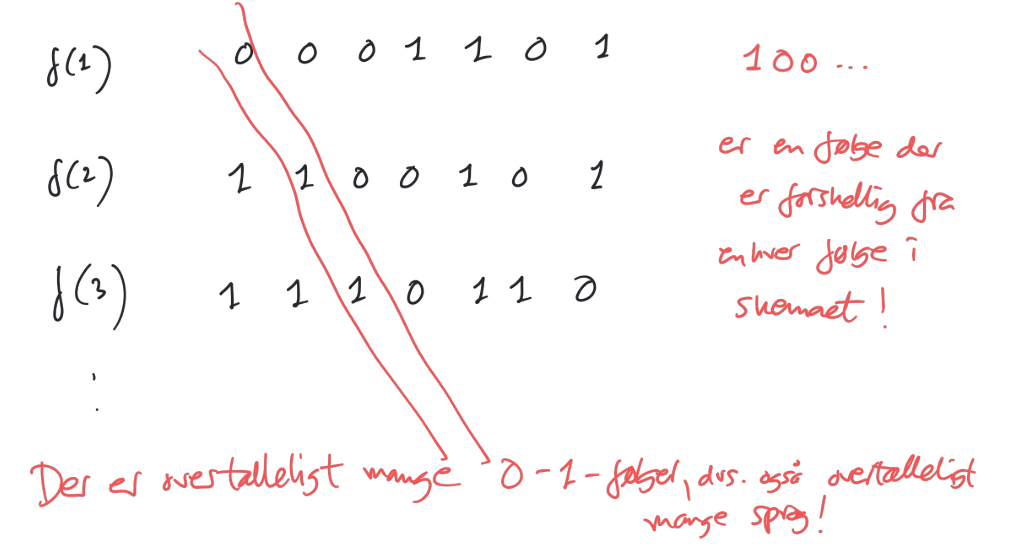 f(1) 0 0 0 1 1 0 1
100...
f(2) 1 1 0 0 1 0 1
er en følge der
er forskellig fra
enhver følge i
skemaet!
f(3) 1 1 1 0 1 1 0
:
Der er overtælleligt mange 0-1-følger, dvs. også overtælleligt
mange sprog!